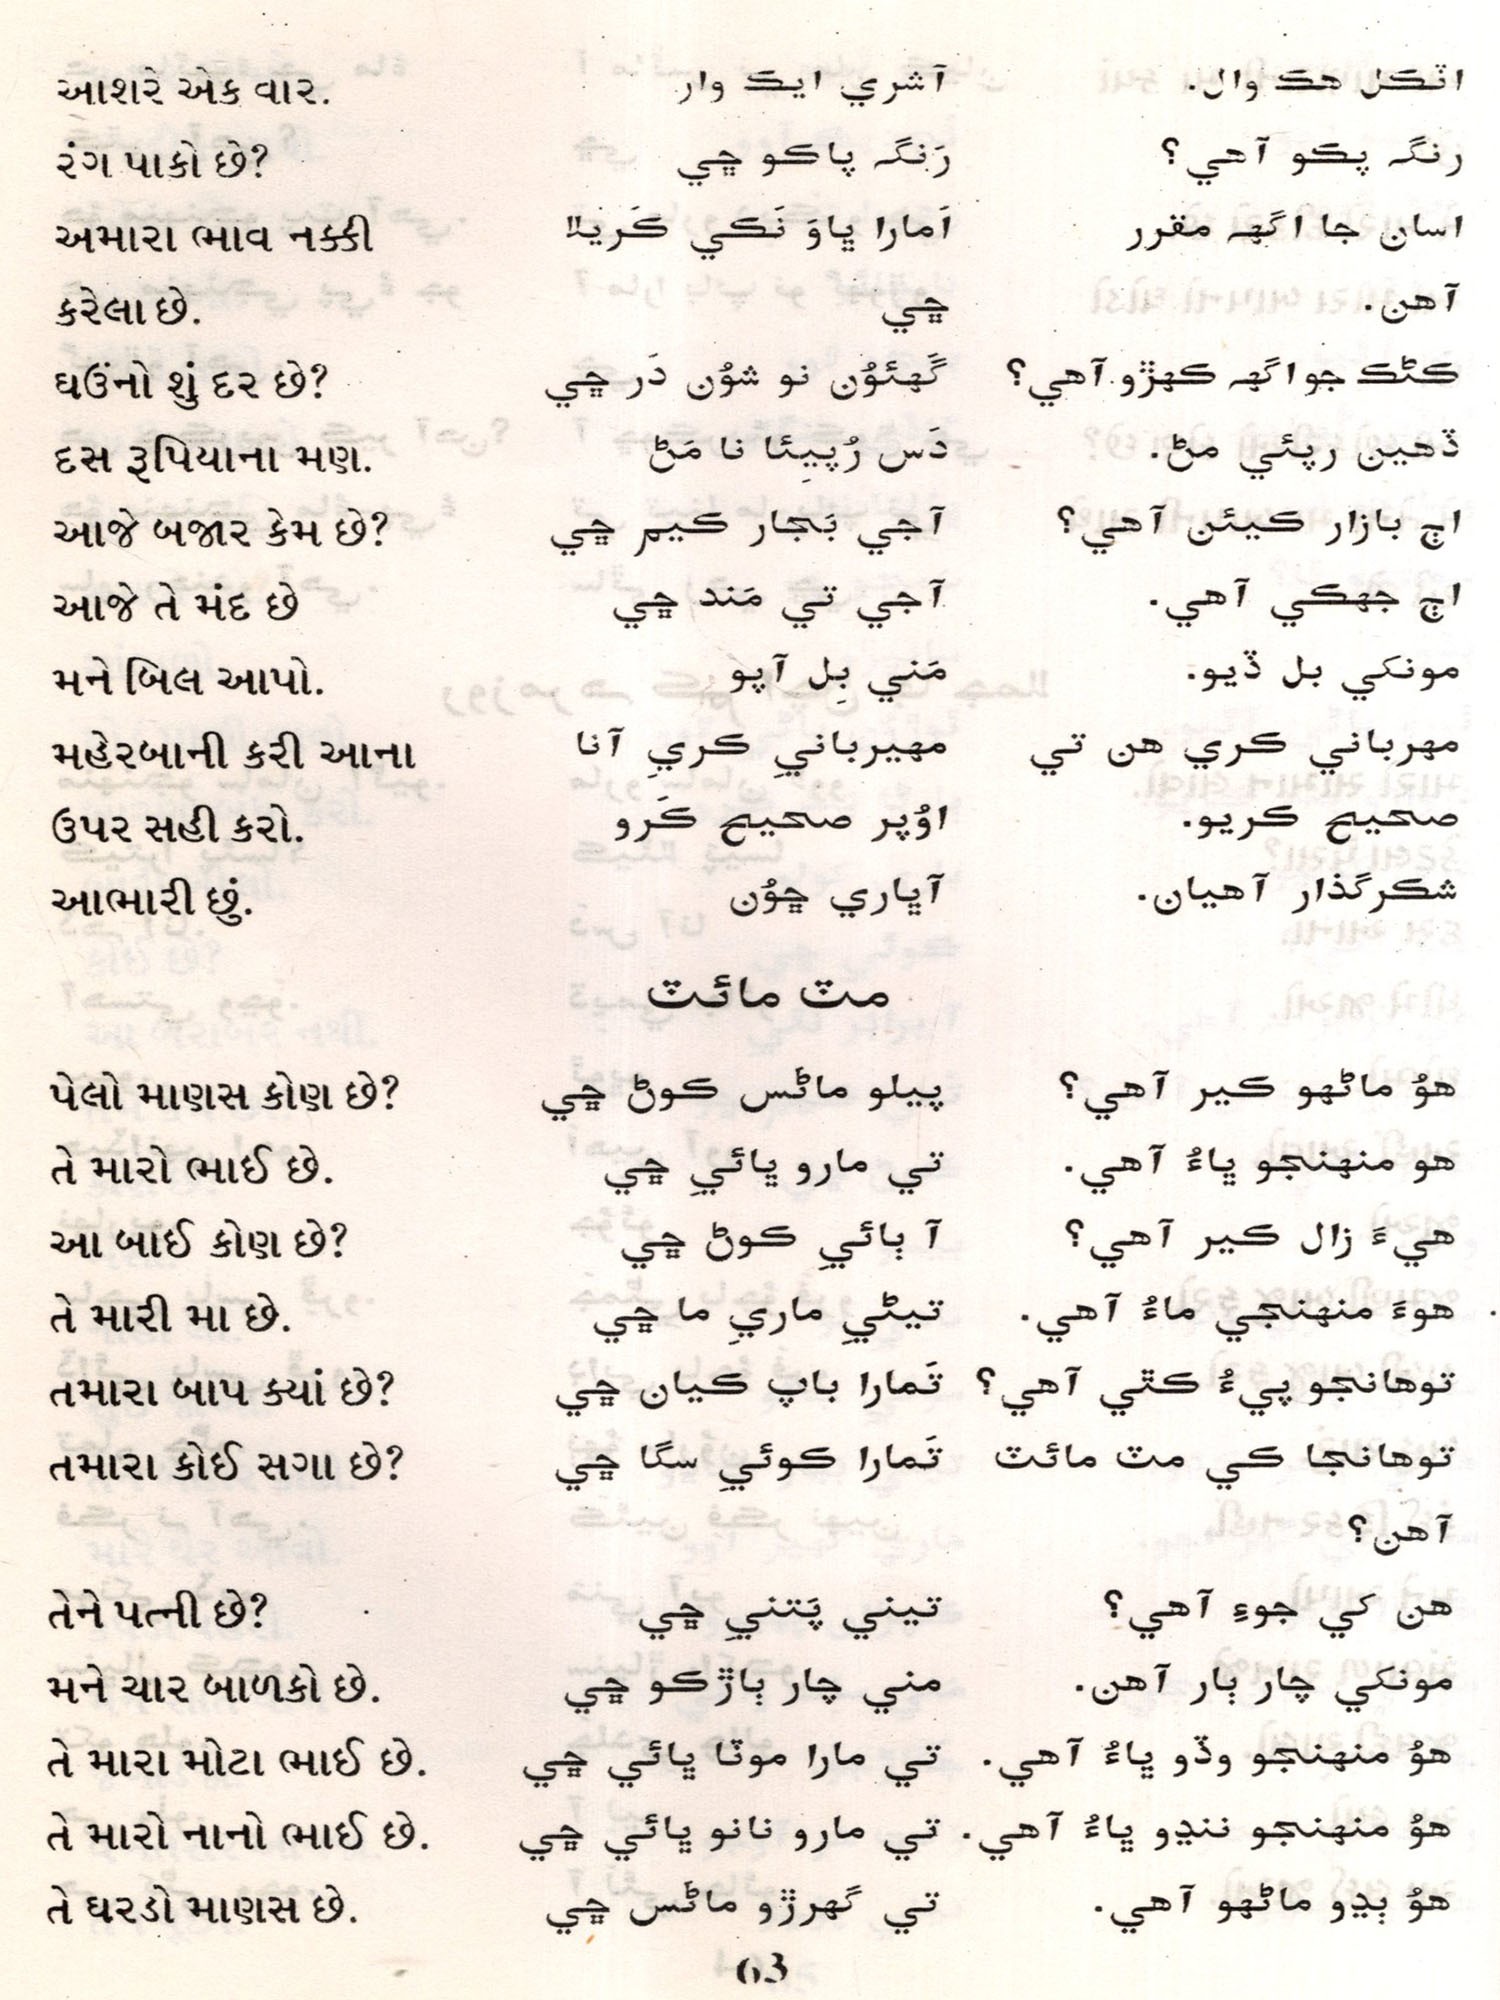 આશરે એક વાર. آشري ايڪ وار اٽڪل هڪ وال.
રંગ પાકો છે? رَنگ پاڪو ڇي رنگ پڪو آهي؟
અમારા ભાવ નક્કી اَمارا ڀاوَ نَڪي ڪَريلا اسان جا اگهہ مقرر
કરેલા છે. ڇي آهن.
ઘઉંનો શું દર છે? گَهئوُن نو شوُن دَر ڇي ڪڻڪ جو اگهہ ڪهڙو آهي؟
દસ રૂપિયાના મણ. دَس رُپيِئا نا مَڻ ڏهين رپئي مڻ.
આજે બજાર કેમ છે? آجي بَجار ڪيم ڇي اڄ بازار ڪيئن آهي؟
આજે તે મંદ છે آجي تي مَند ڇي اڄ جهڪي آهي.
મને બિલ આપો. مَني بِل آپو مونکي بل ڏيو.
મહેરબાની કરી આના مهيربانيِ ڪريِ آنا مهرباني ڪري هن تي
ઉપર સહી કરો. اوُپر صحيح ڪَرو صحيح ڪريو.
આભારી છું. آڀاري ڇوُن شڪرگذار آهيان.
مٽ مائٽ
પેલો માણસ કોણ છે? پيلو ماڻَس ڪوڻ ڇي هوُ ماڻهو ڪير آهي؟
તે મારો ભાઈ છે. تي مارو ڀائيِ ڇي هو منهنجو ڀاءُ آهي.
આ બાઈ કોણ છે? آ ٻائيِ ڪوڻ ڇي هيءَ زال ڪير آهي؟
તે મારી મા છે. تيڻيِ ماريِ ما ڇي هوءَ منهنجي ماءُ آهي.
તમારા બાપ ક્યાં છે? تَمارا باپ ڪيان ڇي توهانجو پيءُ ڪٿي آهي؟
તમારા કોઈ સગા છે? تَمارا ڪوئيِ سگا ڇي توهانجا ڪي مٽ مائٽ
آهن؟
તેને પત્ની છે? تيني پَتنيِ ڇي هن کي جوءِ آهي؟
મને ચાર બાળકો છે. مني چار ٻاڙڪو ڇي مونکي چار ٻار آهن.
તે મારા મોટા ભાઈ છે. تي مارا موٽا ڀائي ڇي هوُ منهنجو وڏو ڀاءُ آهي.
તે મારો નાનો ભાઈ છે. تي مارو نانو ڀائي ڇي هوُ منهنجو ننڍو ڀاءُ آهي.
તે ઘરડો માણસ છે. تي گَهرڙو ماڻَس ڇي هوُ ٻڍو ماڻهو آهي.
63